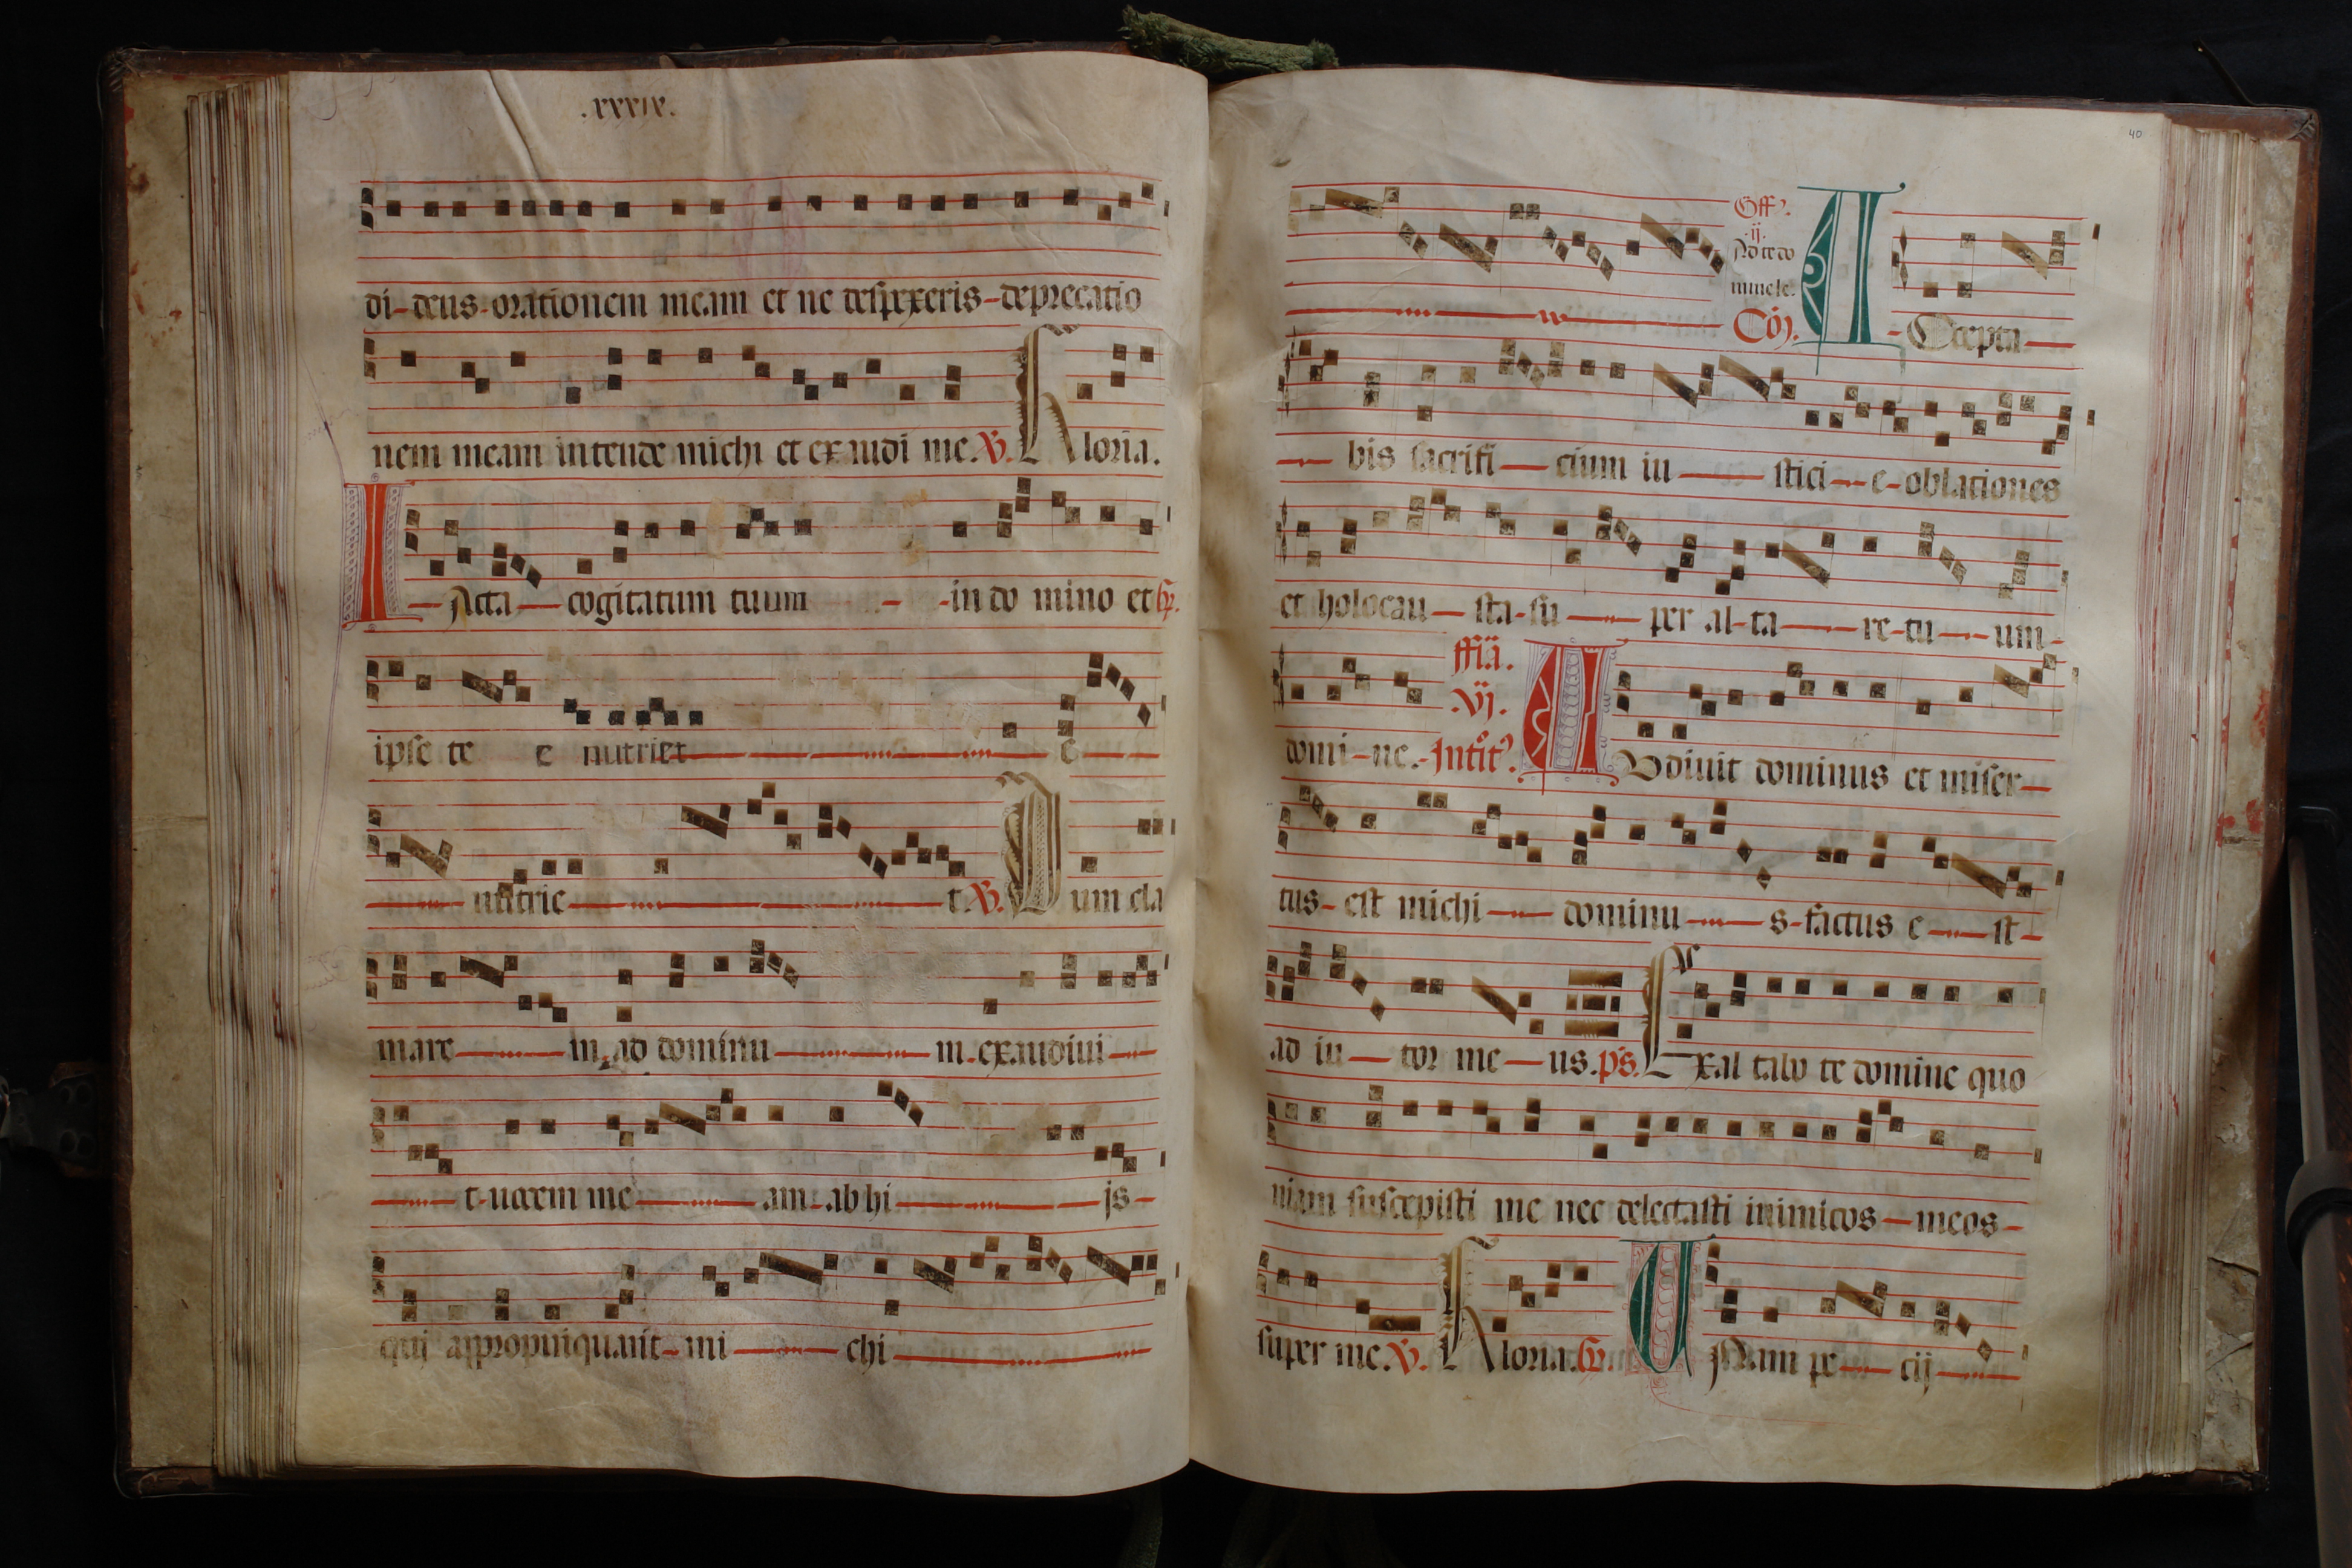 .xxxix.
di-deus-orationem meam et ne despexeris-deprecatio
nem meam intende michi et exaudi me. V. Gloria.
IActa cogitatum tuum in do mino et R.
ipse te e nutriet e
nutrie t. V. Dum cla
mare m. ad dominu m. exaudiui
t. uocem me am. ab hi is
qui appropinquauit mi chi
40
Off.
.ij.
Ad te do
mine le.
Co. ACcepta
bis sacrifi cium iu stici e oblationes
et holocau sta su per al ta re tu um
domi ne. ffia. .vj. Intit. AUdiuit dominus et miser
tus est michi dominu s factus e st
ad iu tor me us. ps. Exal tabo te domine quo
niam suscepisti me nec delectasti inimicos meos
super me. V. Gloria. R. UNam pe cij